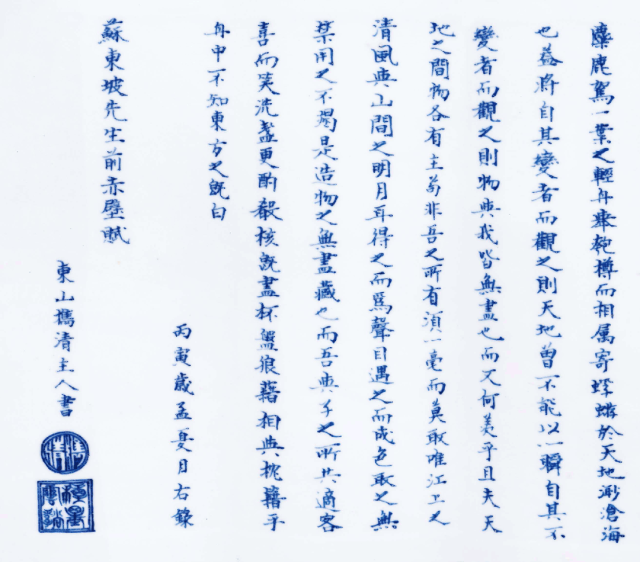 麋鹿駕一葉之輕舟舉匏樽而相属寄蜉蝣於天地渺滄海
也蓋將自其變者而觀之則天地曾不能以一瞬自其不
變者而觀之則物與我皆無盡也而又何羨乎且夫天
地之間物各有主苟非吾之所有須一毫而莫取唯江上之
清風與山間之明月耳得之而爲聲目遇之而成色取之無
禁用之不竭是造物之無盡藏也而吾與子之所共適客
喜而笑洗盞更酌殽核既盡杯盤狼藉相與枕藉乎
舟中不知東方之既白
丙寅歲孟夏月右錄
蘇東坡先生前赤壁賦
東山攜清主人書